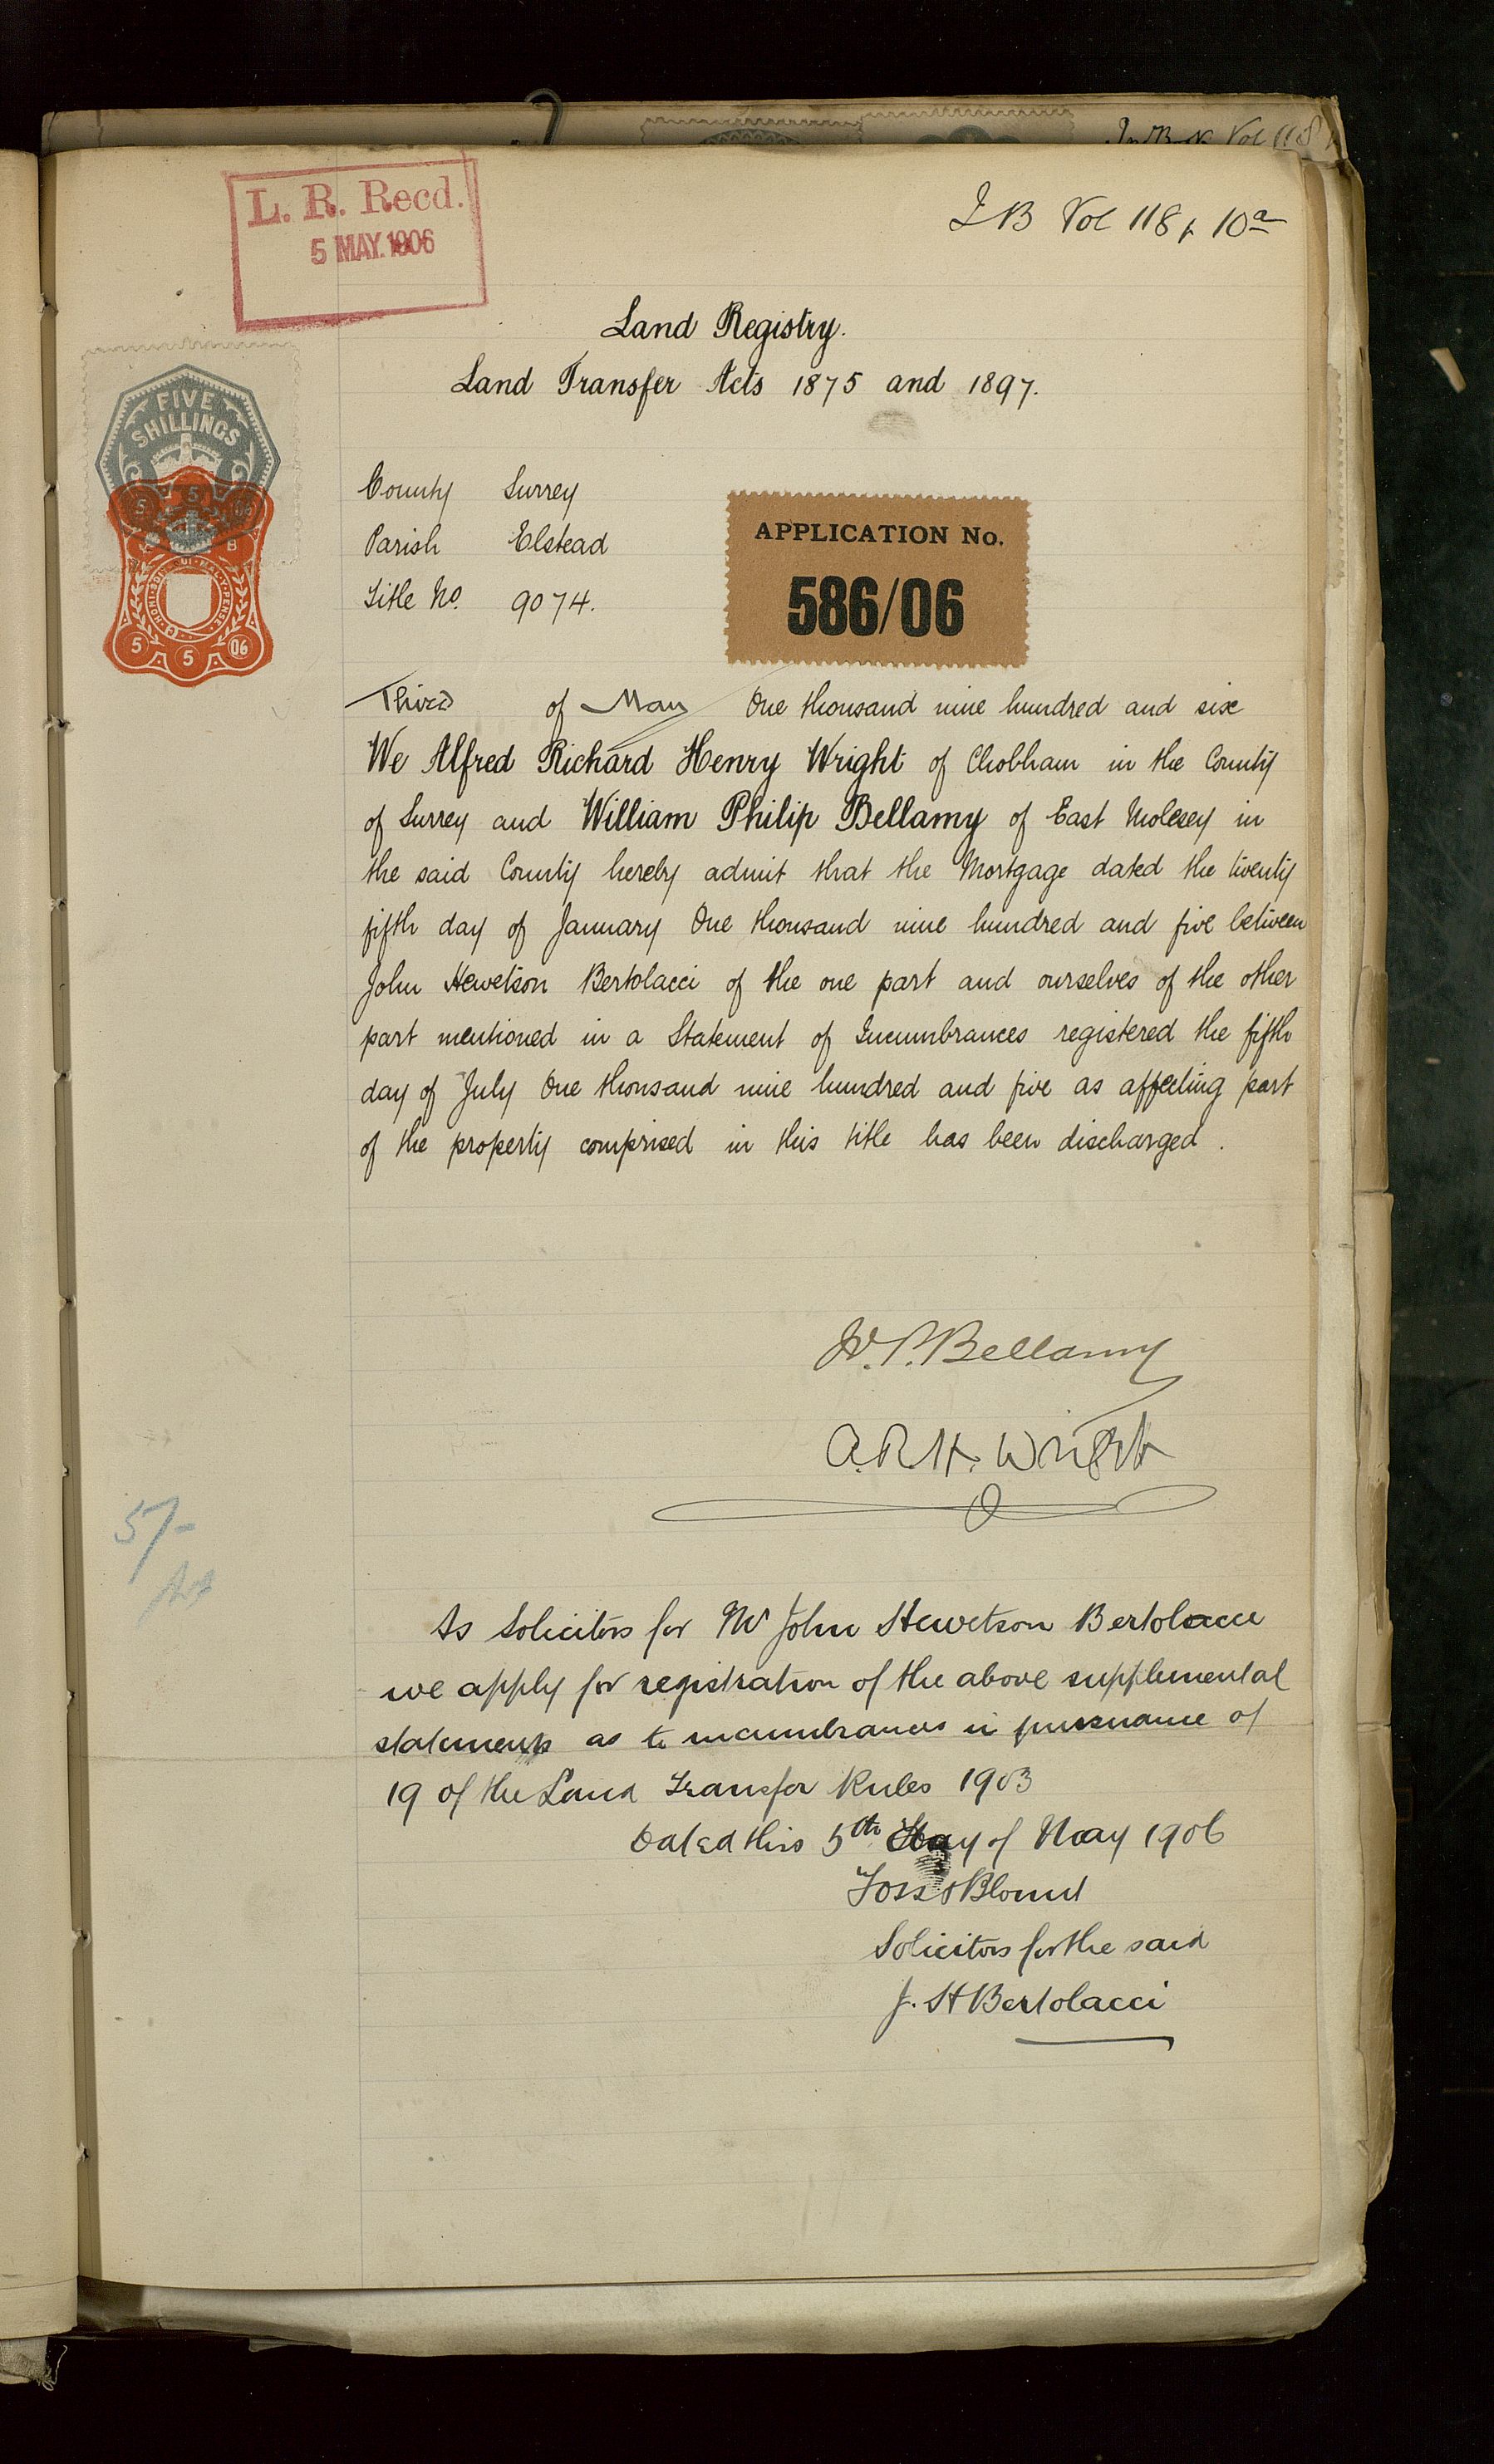 In Book Vol 118
L. R. Recd.
5 MAY. 1906
I B Vol 118 p 10a
Land Registry.
Land Transfer Acts 1875 and 1897.
FIVE
SHILLINGS
5
5 06
HONI·SOIT·QUI·MAL·Y·PENSE
5 5 06
County Surrey
Parish Elstead
Title No. 9074.
APPLICATION No.
586/06
Third of May One thousand nine hundred and six
We Alfred Richard Henry Wright of Chobham in the County
of Surrey and William Philip Bellamy of East Molesey in
the said County hereby admit that the Mortgage dated the twenty
fifth day of January One thousand nine hundred and five between
John Hewetson Bertolacci of the one part and ourselves of the other
part mentioned in a Statement of Incumbrances registered the fifth
day of July One thousand nine hundred and five as affecting part
of the property comprised in this title has been discharged.
W. P. Bellamy
A. R. H. Wright
5/-
As Solicitors for Mr John Hewetson Bertolacci
we apply for registration of the above supplemental
statement as to incumbrances in pursuance of
19 of the Land Transfer Rules 1903
Dated this 5th Day of May 1906
Solicitors for the said
J. H Bertolacci